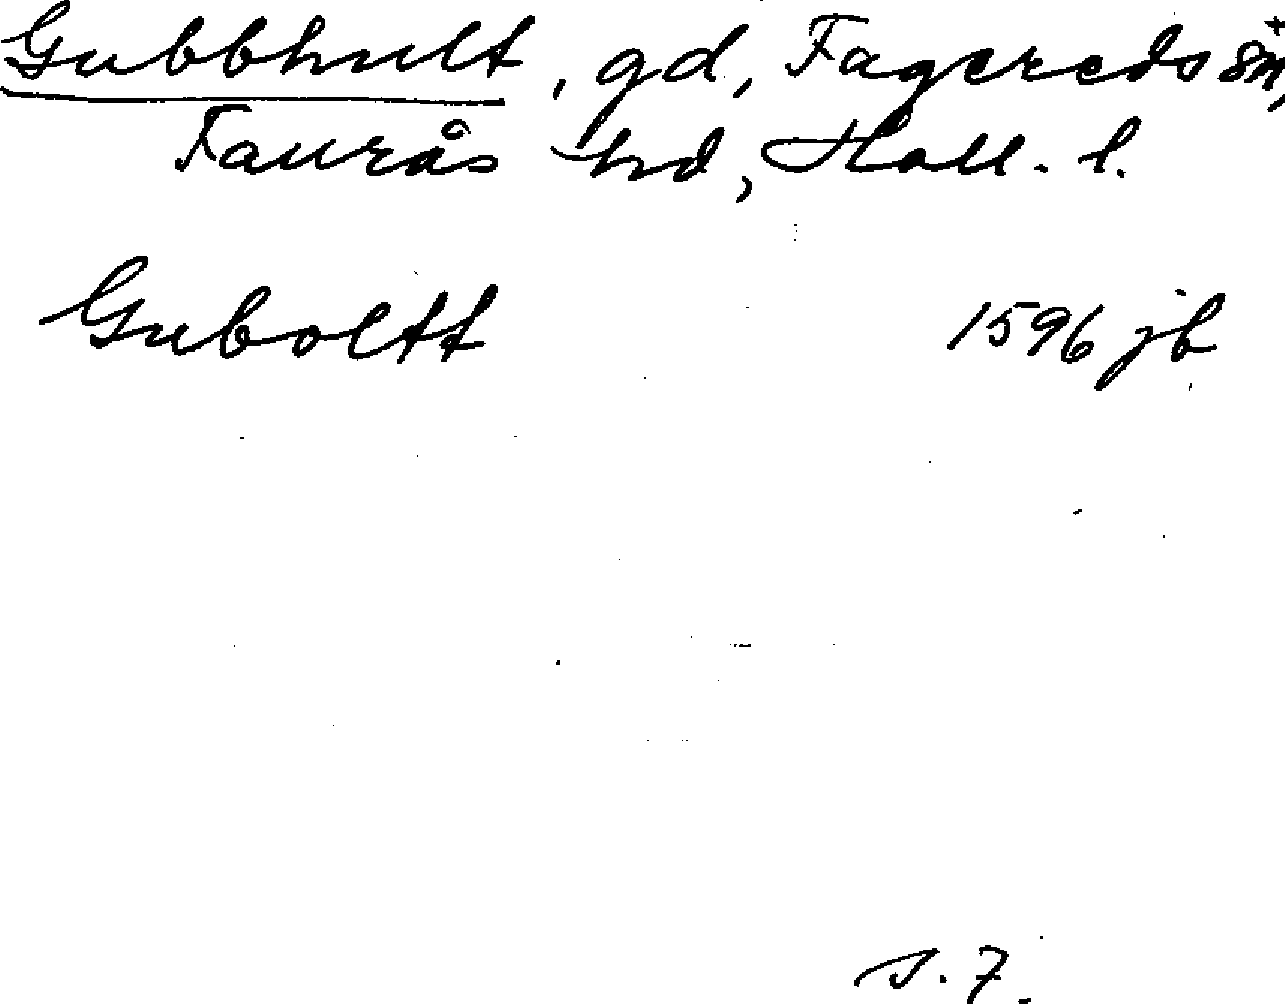 Gubbhult, gd, Fagereds sn,
Faurås hd, Hall. l.
Guboltt 1596 jb
s. 7.